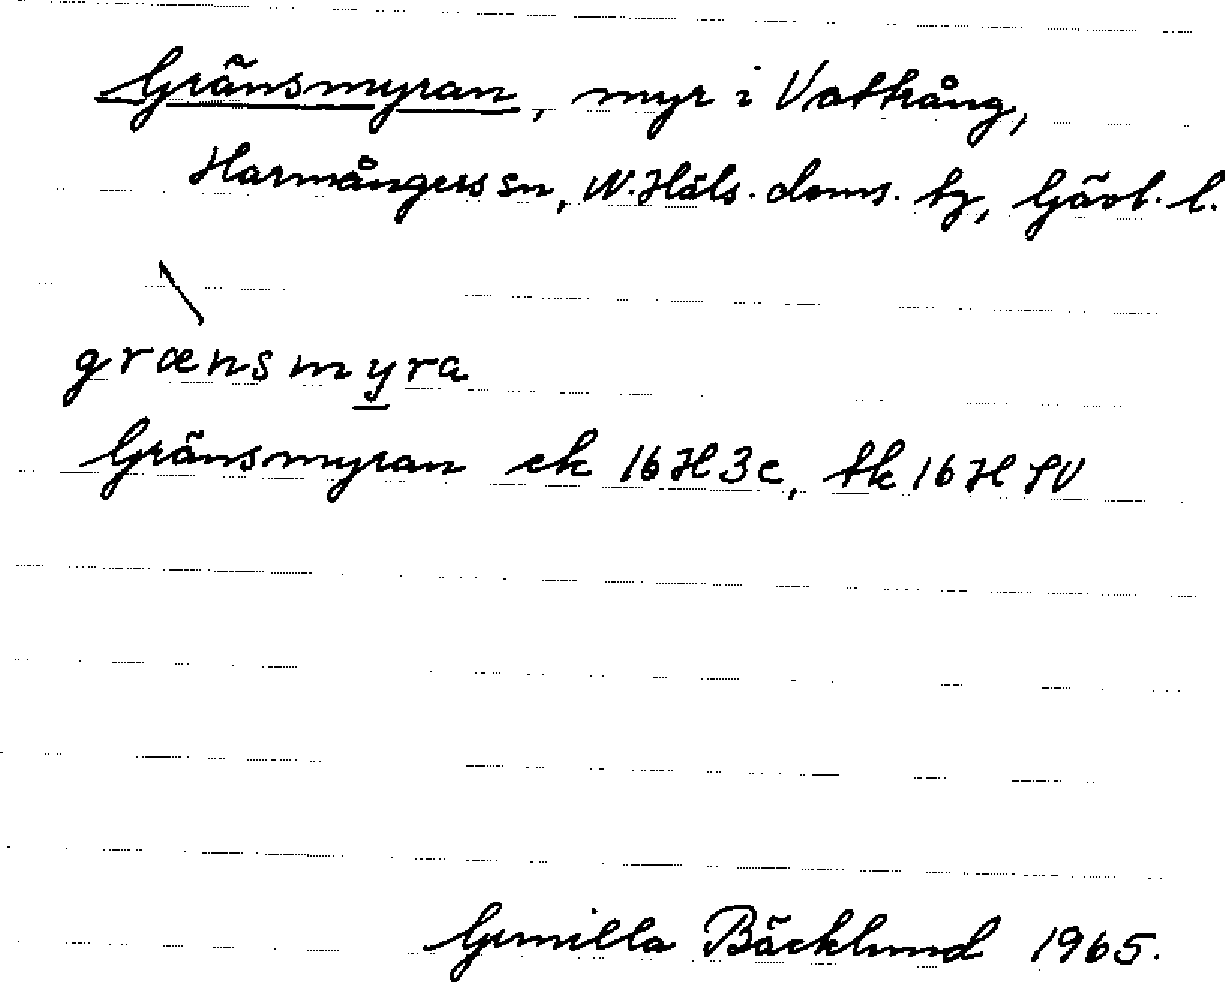 Gränsmyran, myr i Vattrång,
Harmångers sn, N. Häls. doms. tg, Gävl. l.
grænsmyra
Gränsmyran ek 16H3c, tk 16H SV
Gunilla Bäcklund 1965.